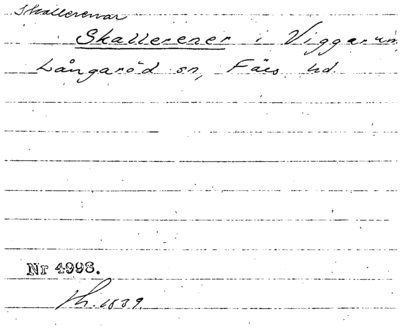 Skallerenar
Skallerener i Viggarum,
Långaröd sn, Färs hd
Nr 4998.
Th. 1839